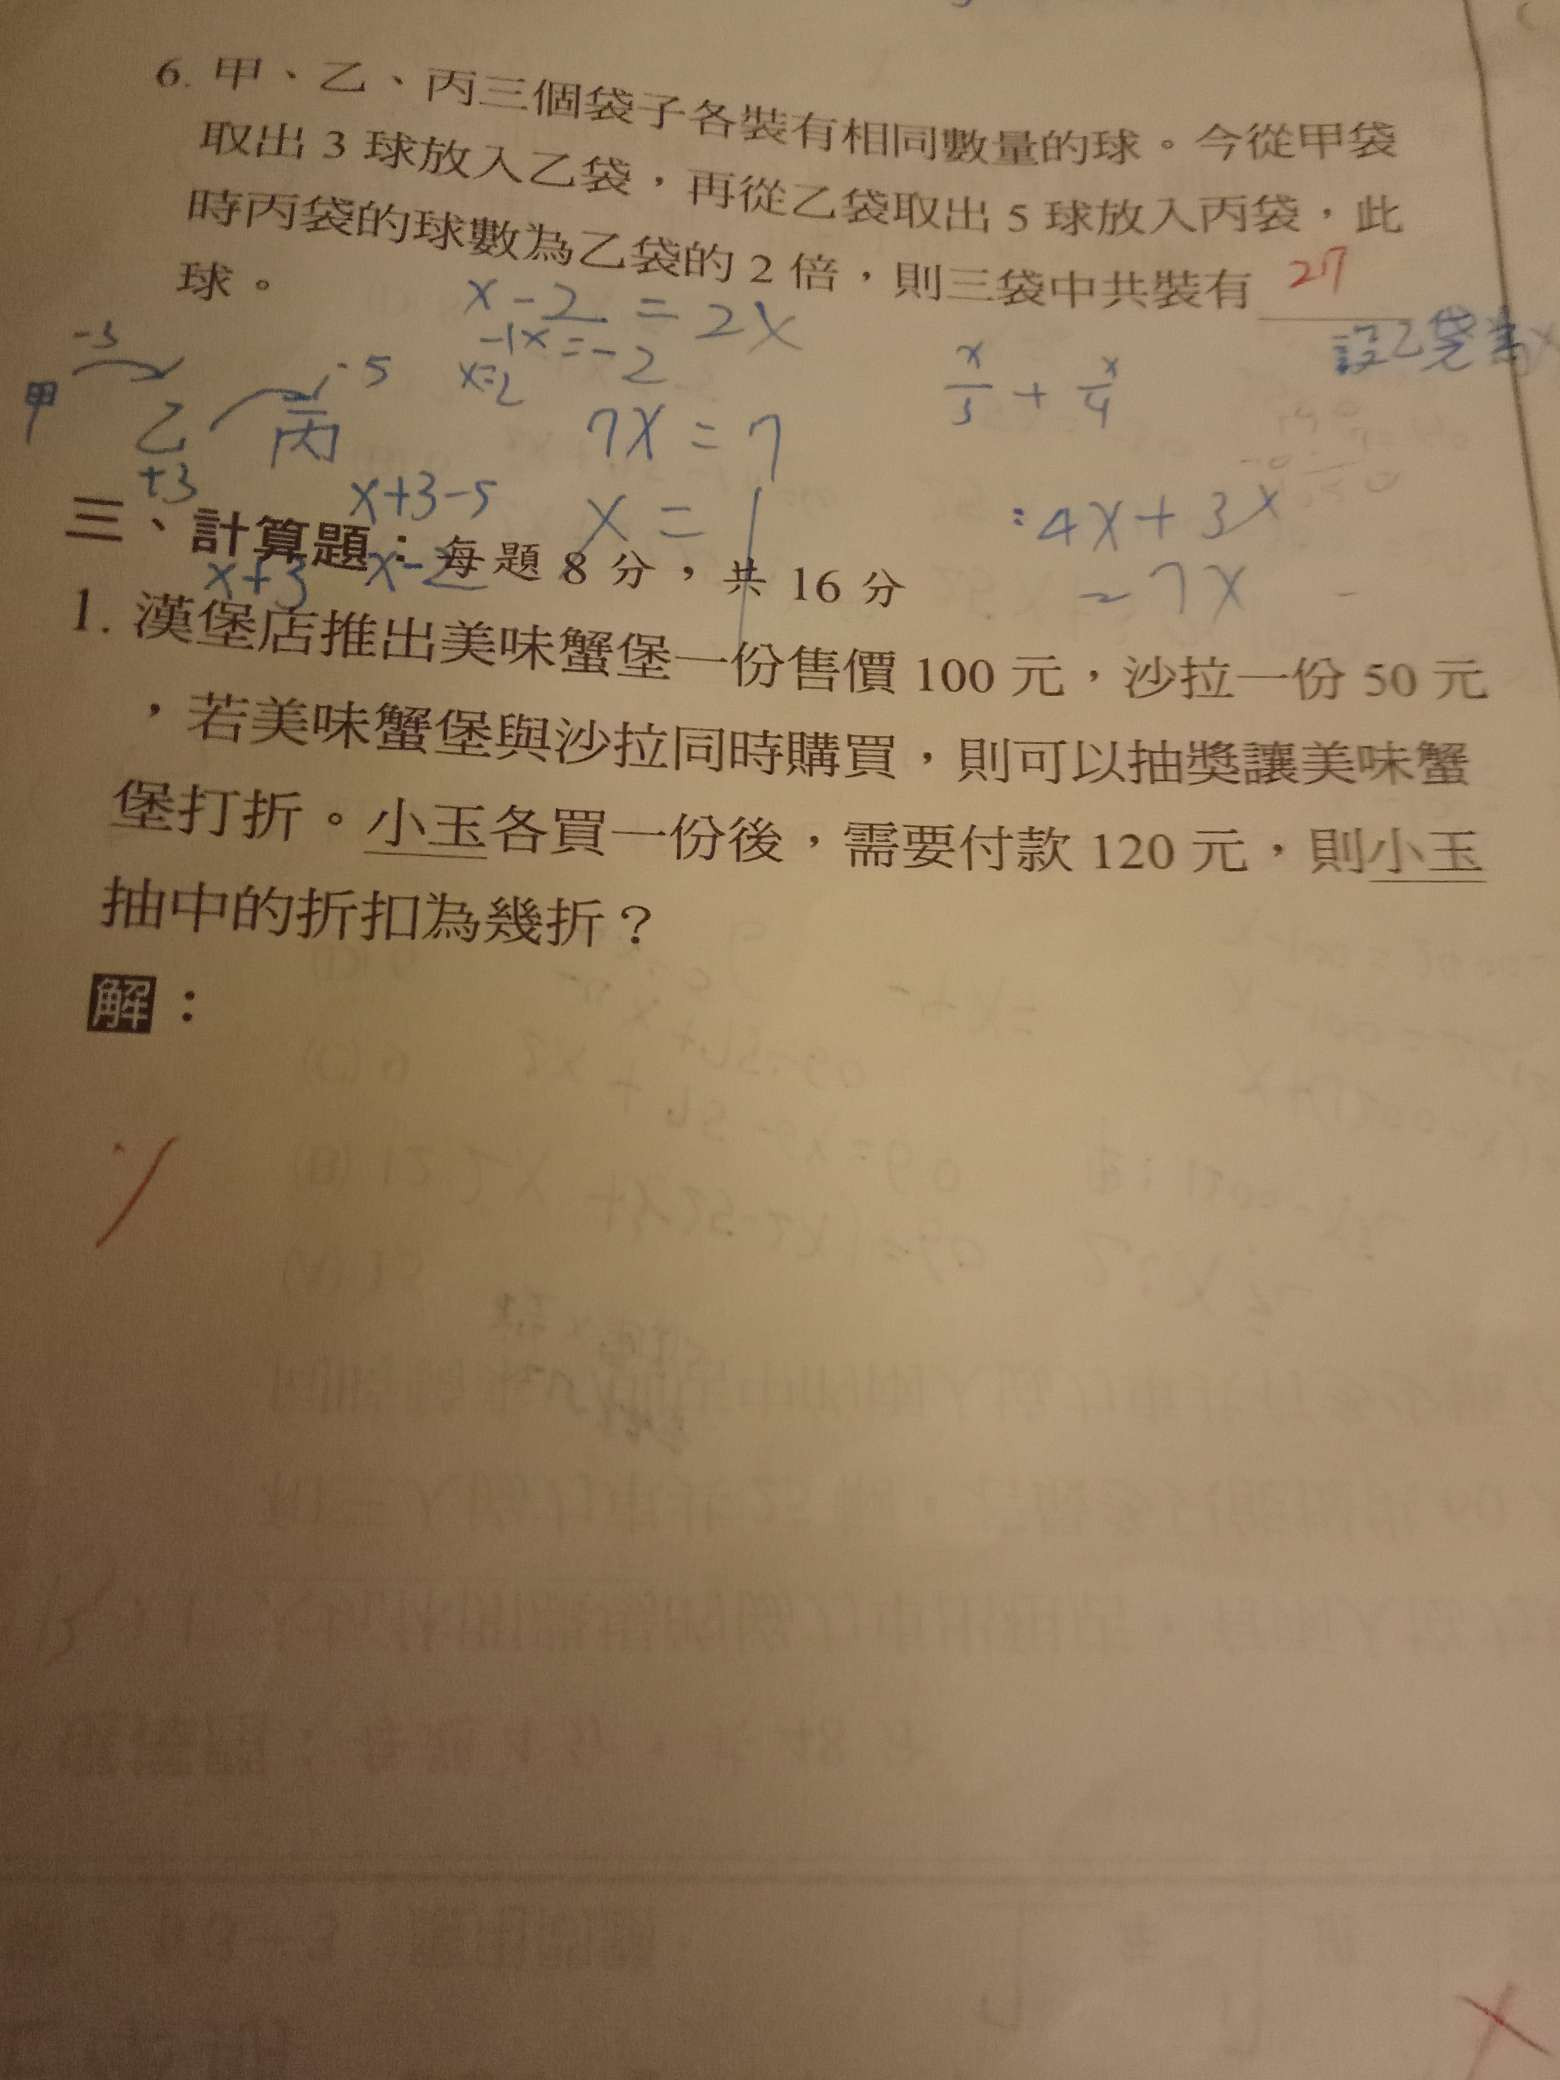 6. 甲、乙、丙三個袋子各裝有相同數量的球。今從甲袋
取出 3 球放入乙袋，再從乙袋取出 5 球放入丙袋，此
時丙袋的球數為乙袋的 2 倍，則三袋中共裝有 27
球。
設乙袋為x
x-2 = 2x
-1x=-2
x=2
-3
甲
乙
+3
丙
-5
7x = 7
x = 1
x/3 + x/4
x+3-5
:4x+3x
=7x
三、計算題：每題 8 分，共 16 分
x+3
x-2
1. 漢堡店推出美味蟹堡一份售價 100 元，沙拉一份 50 元
，若美味蟹堡與沙拉同時購買，則可以抽獎讓美味蟹
堡打折。小玉各買一份後，需要付款 120 元，則小玉
抽中的折扣為幾折？
解：